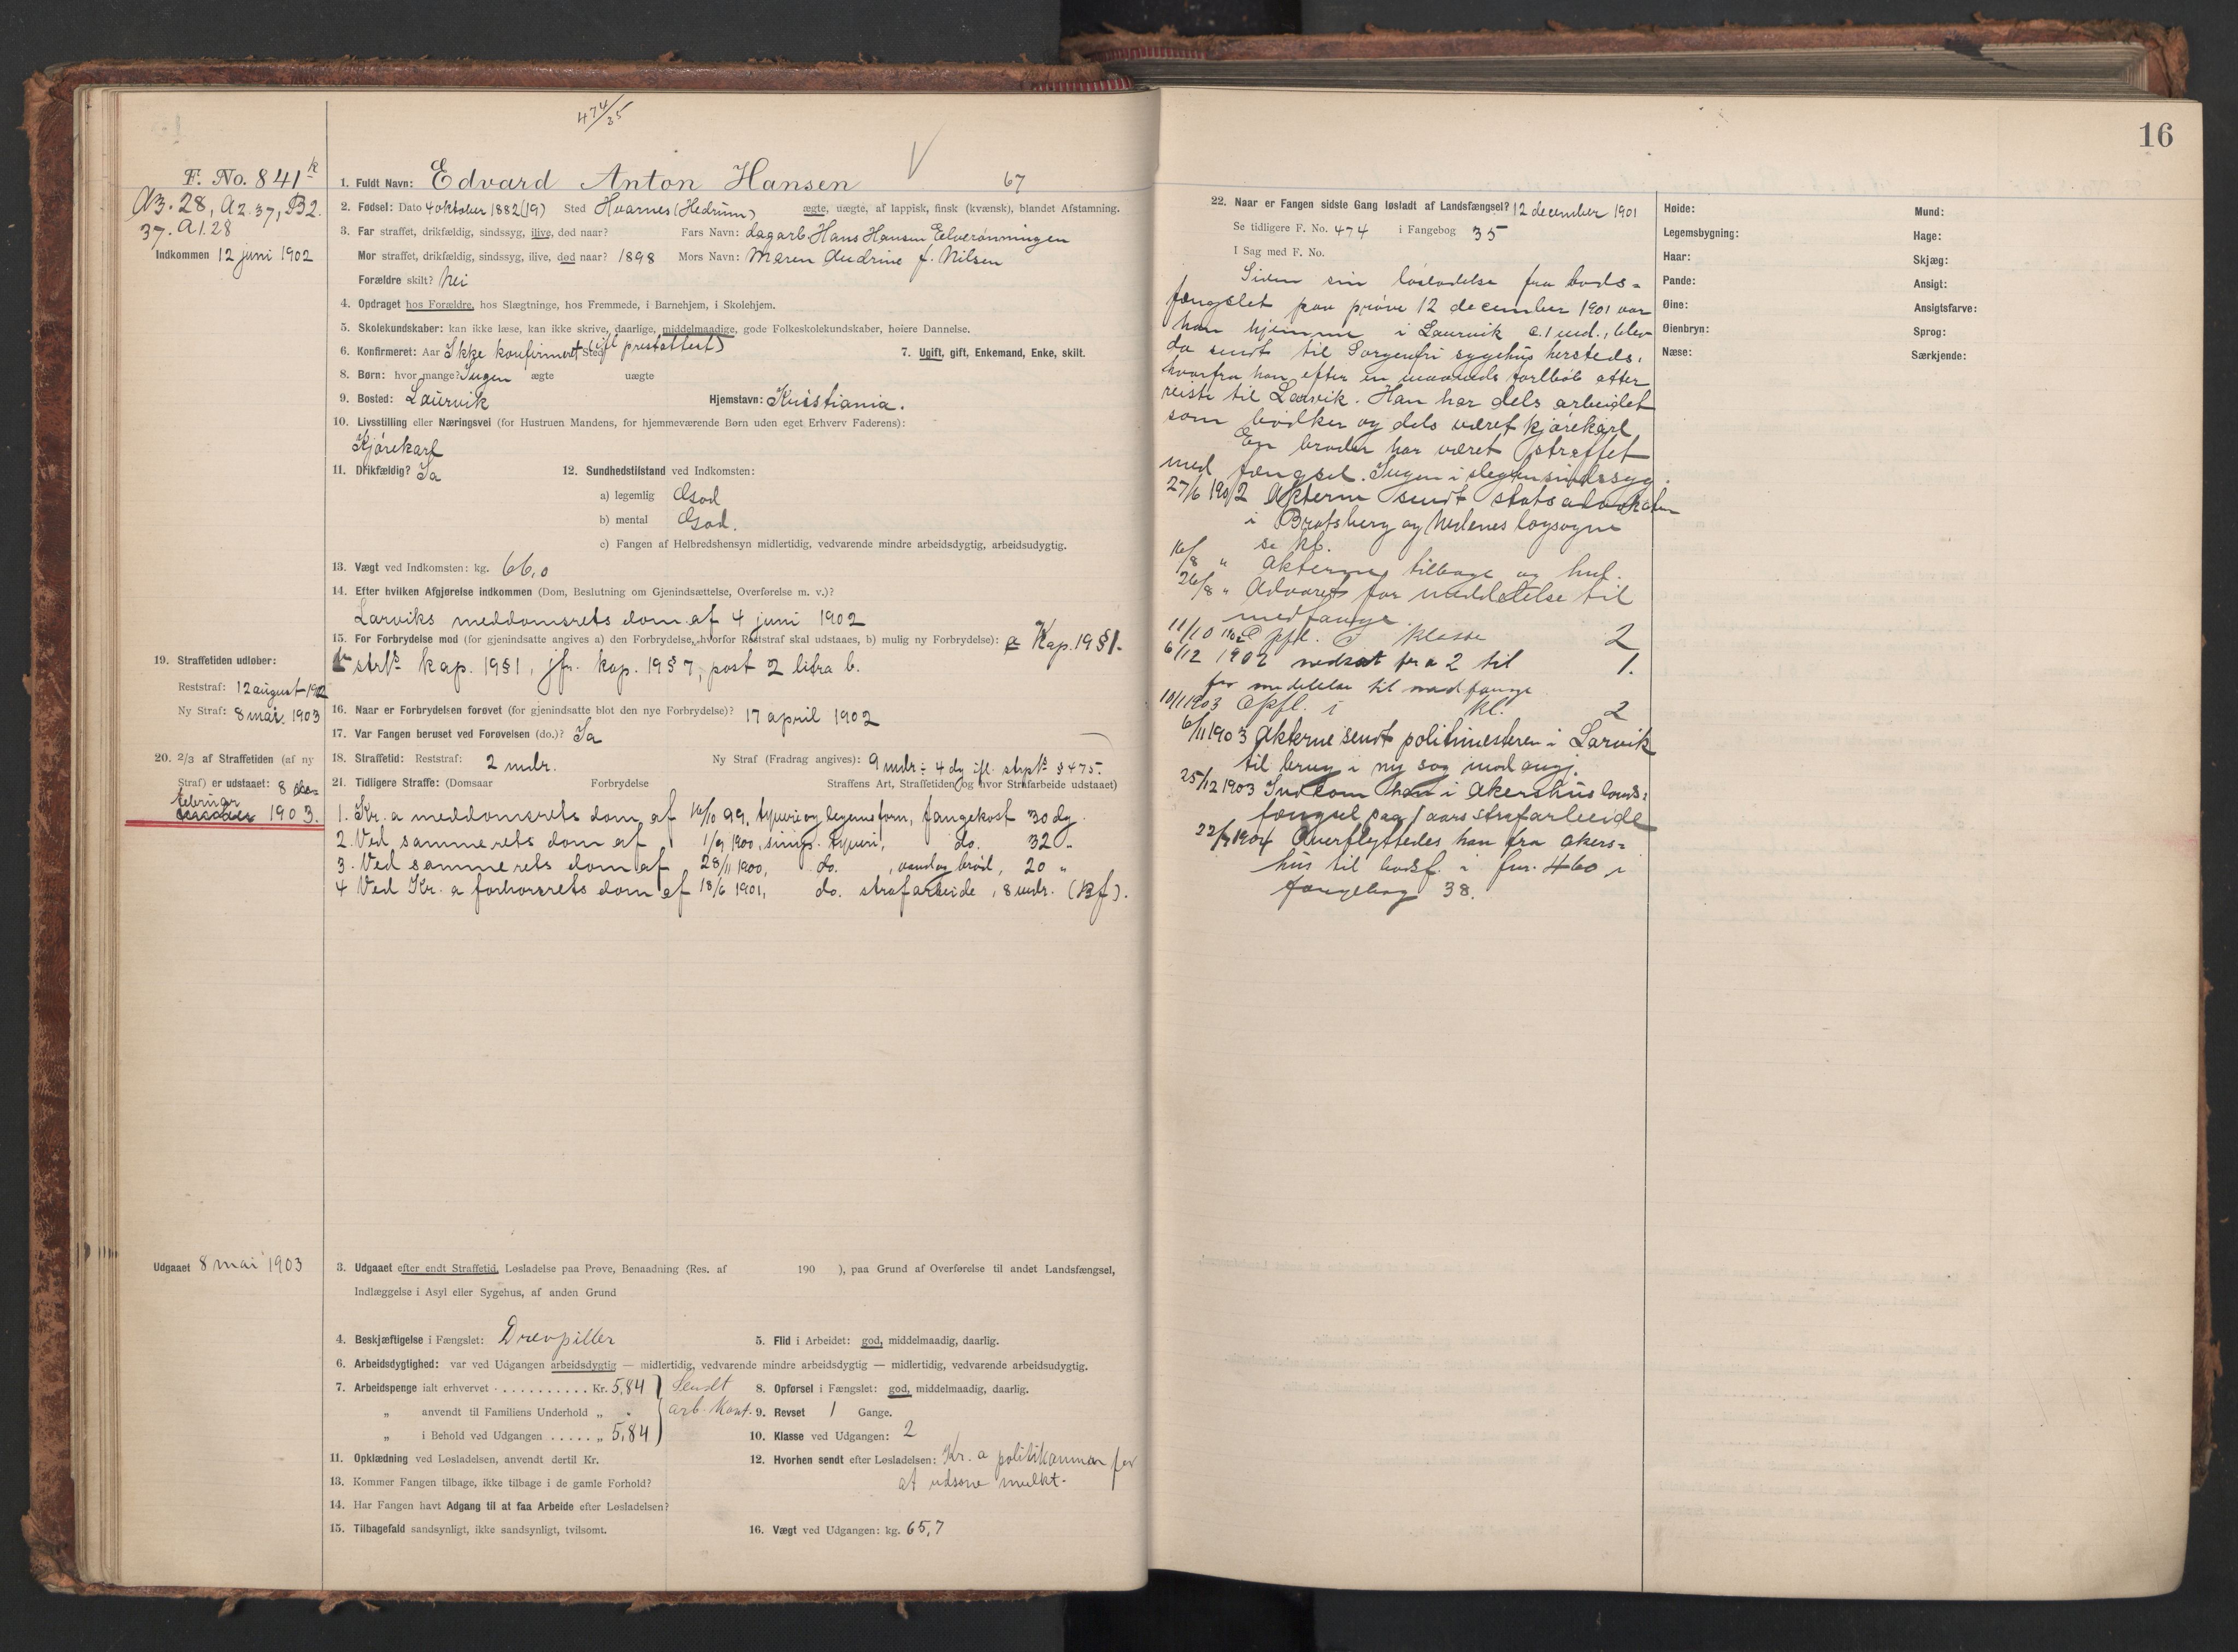 474/35
16
F. No. 841 k
A3. 28, A2. 37, B2.
37. A1. 28
Indkommen 12 juni 1902
1. Fuldt Navn: Edvard Anton Hansen 67
2. Fødsel: Dato 4 oktober 1882 (19) Sted Hvarnes (Hedrum) ægte, uægte, af lappisk, finsk (kvænsk), blandet Afstamning.
3. Far straffet, drikfældig, sindssyg, ilive, død naar? Fars Navn: dagarb. Hans Hansen
Mor straffet, drikfældig, sindssyg, ilive, død naar? 1898 Mors Navn: Maren Andrine f. Nilsen
Forældre skilt? Nei
4. Opdraget hos Forældre, hos Slægtninge, hos Fremmede, i Barnehjem, i Skolehjem.
5. Skolekundskaber: kan ikke læse, kan ikke skrive, daarlige, middelmaadige, gode Folkeskolekundskaber, høiere Dannelse.
6. Konfirmeret: Aar Ikke konfirmeret Sted (ifl prestattest) 7. Ugift, gift, Enkemand, Enke, skilt.
8. Børn: hvor mange? Ingen ægte uægte
9. Bosted: Laurvik Hjemstavn: Kristiania.
10. Livsstilling eller Næringsvei (for Hustruen Mandens, for hjemmeværende Børn uden eget Erhverv Faderens):
Kjørekarl
11. Drikfældig? Ja 12. Sundhedstilstand ved Indkomsten:
a) legemlig God
b) mental God.
c) Fangen af Helbredshensyn midlertidig, vedvarende mindre arbeidsdygtig, arbeidsudygtig.
13. Vægt ved Indkomsten: kg. 66,0
14. Efter hvilken Afgjørelse indkommen (Dom, Beslutning om Gjenindsættelse, Overførelse m. v.)?
Larviks meddomsrets dom af 4 juni 1902
15. For Forbrydelse mod (for gjenindsatte angives a) den Forbrydelse, hvorfor Reststraf skal udstaaes, b) mulig ny Forbrydelse): a Kap. 19 § 1.
strl. kap. 19 § 1, jfr. kap. 19 § 7, post 2 litra b.
19. Straffetiden udløber:
Reststraf: 12 august 1902
Ny Straf: 8 mai 1903
16. Naar er Forbrydelsen forøvet (for gjenindsatte blot den nye Forbrydelse)? 17 april 1902
17. Var Fangen beruset ved Forøvelsen (do.)? Ja
18. Straffetid: Reststraf: 2 mdr. Ny Straf (Fradrag angives): 9 mdr ÷ 4 dg ifl. strpl. § 475.
20. 2/3 af Straffetiden (af ny
Straf) er udstaaet: 8
februar
1903.
21. Tidligere Straffe: (Domsaar Forbrydelse Straffens Art, Straffetiden og hvor Strafarbeide udstaaet)
1. Kr.a meddomsrets dom af 16/10 99, tyveri og legemsforn, fangekost 30 dg.
2. Ved samme rets dom af 1/9 1900, simp. tyveri, do. 32 "
3. Ved samme rets dom af 28/11 1900, do. , vand og brød, 20 "
4 Ved Kr.a forhørsrets dom af 18/6 1901, do. strafarbeide, 8 mdr. (Bf).
Udgaaet 8 mai 1903
3. Udgaaet efter endt Straffetid, Løsladelse paa Prøve, Benaadning (Res. af 190 ), paa Grund af Overførelse til andet Landsfængsel,
Indlæggelse i Asyl eller Sygehus, af anden Grund
4. Beskjæftigelse i Fængslet: Drevpiller 5. Flid i Arbeidet: god, middelmaadig, daarlig.
6. Arbeidsdygtighed: var ved Udgangen arbeidsdygtig — midlertidig, vedvarende mindre arbeidsdygtig — midlertidig, vedvarende arbeidsudygtig.
7. Arbeidspenge ialt erhvervet . . . . . . . . . . . Kr. 5,84 Sendt 8. Opførsel i Fængslet: god, middelmaadig, daarlig.
„ anvendt til Familiens Underhold „ - arb. kont. 9. Revset 1 Gange.
„ i Behold ved Udgangen . . . . . „ 5,84 10. Klasse ved Udgangen: 2
11. Opklædning ved Løsladelsen, anvendt dertil Kr. 12. Hvorhen sendt efter Løsladelsen: Kr.a politikammer for
at udsone mulkt.
13. Kommer Fangen tilbage, ikke tilbage i de gamle Forhold?
14. Har Fangen havt Adgang til at faa Arbeide efter Løsladelsen?
15. Tilbagefald sandsynligt, ikke sandsynligt, tvilsomt. 16. Vægt ved Udgangen: kg. 65,7
22. Naar er Fangen sidste Gang løsladt af Landsfængsel? 12 december 1901
Se tidligere F. No. 474 i Fangebog 35
I Sag med F. No.
Siden sin løsladelse fra bods=
fængslet paa prøve 12 december 1901 var
han hjemme i Laurvik c. 1 md., blev
da sendt til Sorgenfri sygehus hersteds,
hvorfra han efter en maaneds forløb atter
reiste til Larvik. Han har dels arbeidet
som bødker og dels været kjørekarl
En broder har været straffet
med fængsel. Ingen i slegten sindssyg.
27/6 1902 Akterne sendt statsadvokaten
i Bratsberg og Nedenes lagsogne
se kb.
16/8 " Akterne tilbage og
26/8 " Advaret for meddelelse til
medfange.
11/10 1902 Opfl. i klasse 2
6/12 1902 nedsat fra 2 til 1.
for medelelse til medfange
10/1 1903 Opfl. i kl. 2
6/11 1903 Akterne sendt politimesteren i Larvik
til brug i ny sag mod ang.
25/12 1903 Indkom han i Akershus lands=
fængsel paa 1 aars strafarbeide
1904 Overflyttedes han fra akers=
hus til bodsf. i fnr. 460 i
fangebog 38.
Høide:
Legemsbygning:
Haar:
Pande:
Øine:
Øienbryn:
Næse:
Mund:
Hage:
Skjæg:
Ansigt:
Ansigtsfarve:
Sprog:
Særkjende: